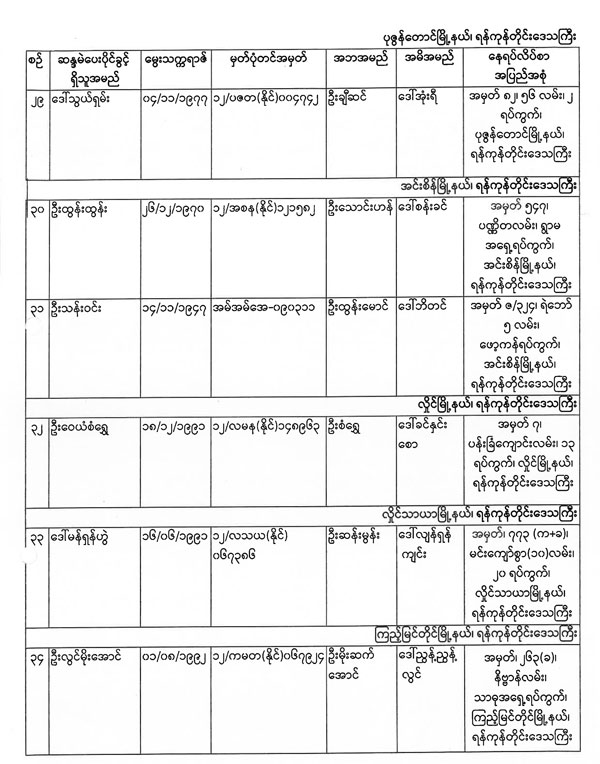 ပုဇွန်တောင်မြို့နယ်၊ ရန်ကုန်တိုင်းဒေသကြီး
စဉ် ဆန္ဒမဲပေးပိုင်ခွင့် ရှိသူအမည် မွေးသက္ကရာဇ် မှတ်ပုံတင်အမှတ် အဘအမည် အမိအမည် နေရပ်လိပ်စာ အပြည်အစုံ
၂၉ ဒေါ်သွယ်ရှမ်း ၀၄/၁၁/၁၉၇၇ ၁၂/ပဇတ(နိုင်)၀၀၄၇၄၂ ဦးချီဆင် ဒေါ်အုံးရီ အမှတ် ၈၂၊ ၅၆ လမ်း၊ ၂
ရပ်ကွက်၊
ပုဇွန်တောင်မြို့နယ်၊
ရန်ကုန်တိုင်းဒေသကြီး
အင်းစိန်မြို့နယ်၊ ရန်ကုန်တိုင်းဒေသကြီး
၃၀ ဦးထွန်းထွန်း ၂၆/၁၂/၁၉၇၀ ၁၂/အစန(နိုင်)၁၂၁၅၈၂ ဦးသောင်းဟန် ဒေါ်စန်းခင် အမှတ် ၅၄၇၊
ပဏ္ဍိတလမ်း၊ ရွာမ
အရှေ့ရပ်ကွက်၊
အင်းစိန်မြို့နယ်၊
ရန်ကုန်တိုင်းဒေသကြီး
၃၁ ဦးသန်းဝင်း ၁၄/၁၁/၁၉၄၇ အမ်အမ်အေ-၀၉၀၃၁၁ ဦးထွန်းမောင် ဒေါ်ဘိတင် အမှတ် ဇ/၃၂၄၊ ရဲဘော်
၅ လမ်း၊
ဖော့ကန်ရပ်ကွက်၊
အင်းစိန်မြို့နယ်၊
ရန်ကုန်တိုင်းဒေသကြီး
လှိုင်မြို့နယ်၊ ရန်ကုန်တိုင်းဒေသကြီး
၃၂ ဦးဝေယံစံရွှေ ၁၈/၁၂/၁၉၉၁ ၁၂/လမန(နိုင်)၁၄၈၉၆၃ ဦးစံရွှေ ဒေါ်ခင်နှင်း အမှတ် ၇၊
စော ပန်းခြံကျောင်းလမ်း၊ ၁၃
ရပ်ကွက်၊ လှိုင်မြို့နယ်၊
ရန်ကုန်တိုင်းဒေသကြီး
လှိုင်သာယာမြို့နယ်၊ ရန်ကုန်တိုင်းဒေသကြီး
၃၃ ဒေါ်မန်ရှန်ဟွဲ ၁၆/၀၆/၁၉၉၁ ၁၂/လသယ(နိုင်) ဦးဆန်းမွန်း ဒေါ်လျန်ရှန် အမှတ်၊ ၇၇၃ (က+ခ)၊
၀၆၇၃၈၆ ကျင်း မင်းကျော်စွာ(၁၀)လမ်း၊
၂၀ ရပ်ကွက်၊
လှိုင်သာယာမြို့နယ်၊
ရန်ကုန်တိုင်းဒေသကြီး
ကြည့်မြင်တိုင်မြို့နယ်၊ ရန်ကုန်တိုင်းဒေသကြီး
၃၄ ဦးလွင်မိုးအောင် ၀၁/၀၈/၁၉၉၂ ၁၂/ကမတ(နိုင်)၀၆၇၉၂၄ ဦးမိုးဆက် ဒေါ်ညွန့်ညွန့် အမှတ်၊ ၂၆၃(ခ)၊
အောင် လွင် နိဗ္ဗာန်လမ်း၊
သာဓုအရှေ့ရပ်ကွက်၊
ကြည့်မြင်တိုင်မြို့နယ်၊
ရန်ကုန်တိုင်းဒေသကြီး